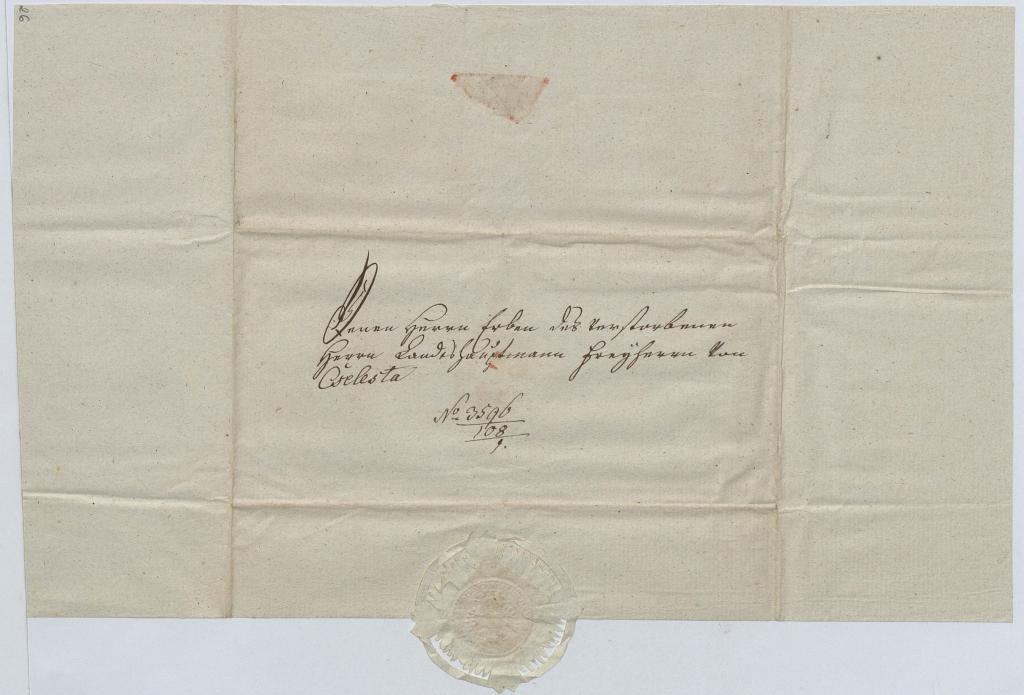 26
Denen Herrn Erben des verstorbenen
Herrn Landeshauptmann Freyherrn von
Cselesta
No 3596
108
9.